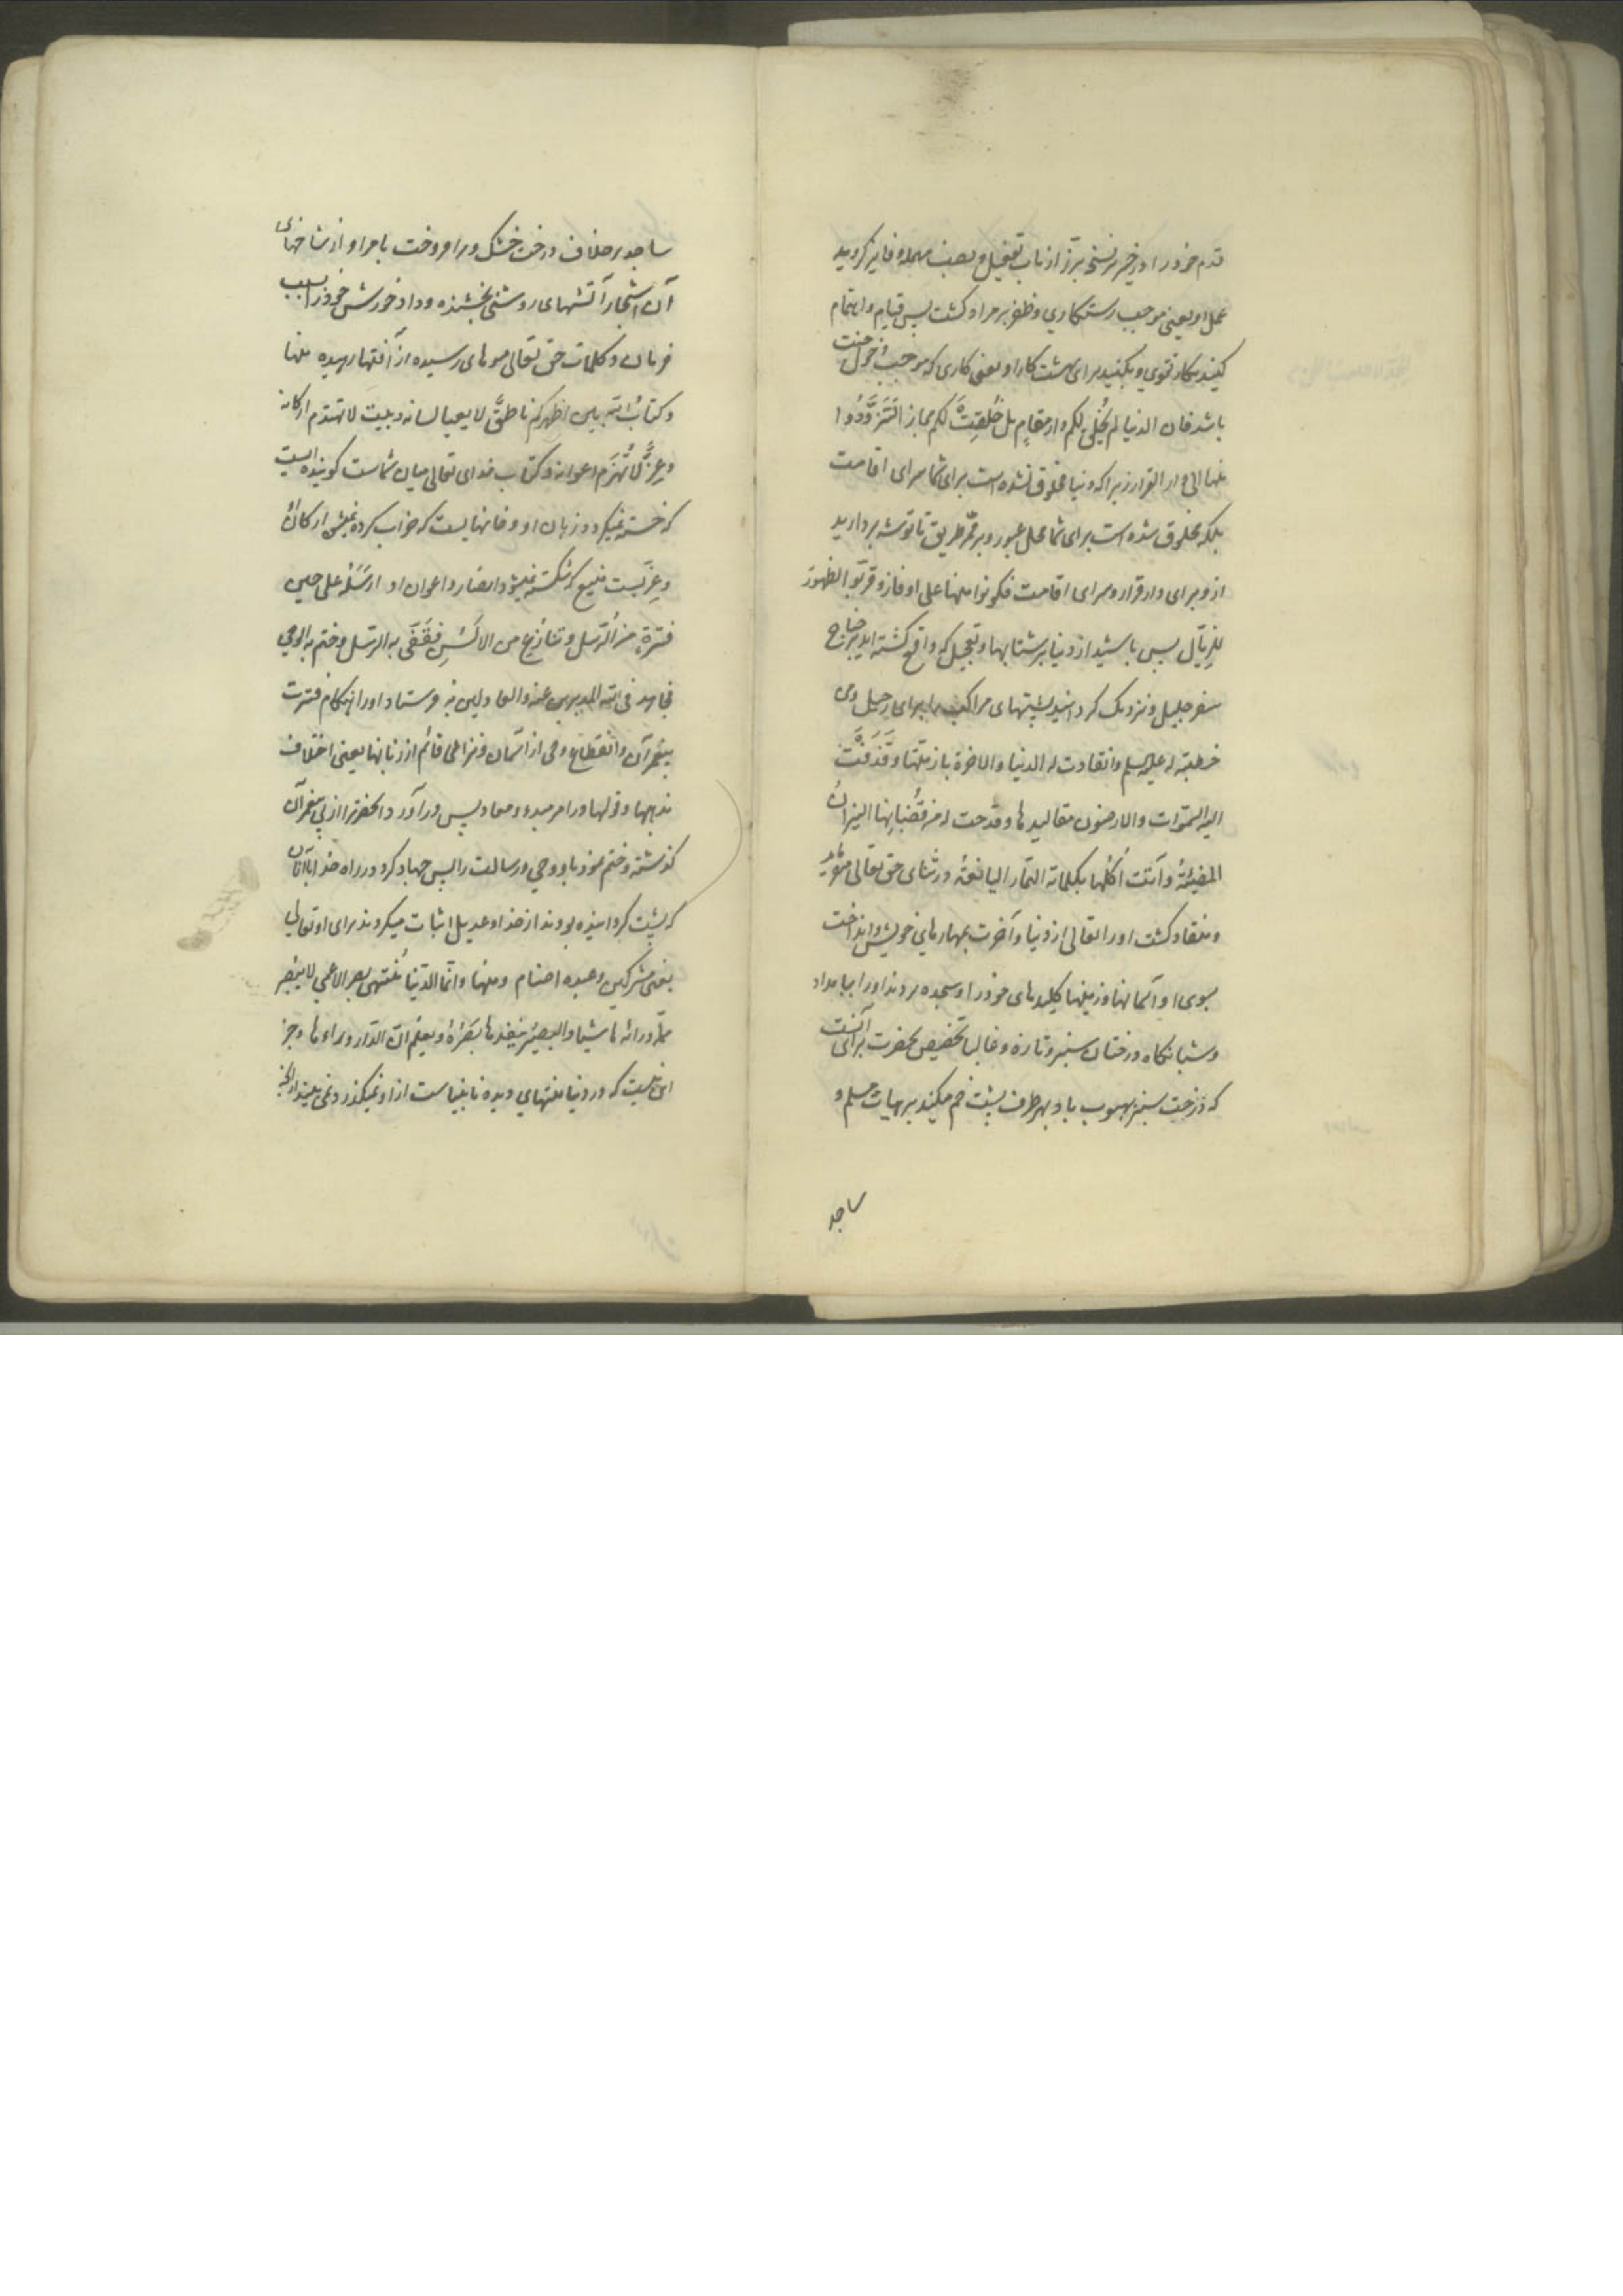 قدم خود را در خیر بر نسخ برّز از باب تفعیل و بصیغه مهمله و فایز کردید
عمل او یعنی موجب رستگاری و ظفر بر مراد گشت پس قیام و اهتمام
کنید بکار تقوی و بکنید برای بهشت کار او یعنی کاری که موجب دخول جنت
باشد فان الدنیا لم تُخلق لکم دار مقامٍ بل خُلِقت لکم مجازا لتَزَوَّدُوا
منها الی دار القرار زیرا که دنیا مخلوق نشده است برای شما سرای اقامت
بلکه مخلوق شده است برای شما محل عبور و بر ممرّ طریق تا توشه بردارید
ازو برای دار قرار و سرای اقامت فکونوا منها علی اوفاز و قربّوا الظهور
للزیّال پس باشید از دنیا بر شتابها و تعجیل که واقع گشته اید بر جناح
سفر جلیل و نزدیک گردانید پشتهای مراکب را برای رحیل ومن
خطبته له علیه السلم وانقادت له الدنیا والاخرة بازمّتها وقَذَفَت
الیه السّموات والارضون مقالیدها وقدحت له من قُضبانِها النیرانُ
المضیئةُ وآتت اُکُلَها بکلماته الثمار الیانعةُ در ثنای حق تعالی میفرماید
و منقاد گشت او را تعالی از دنیا و آخرت بمهارهای خویش و انداخت
بسوی او آسمانها و زمینها کلیدهای خود را و سجده بردند او را ببامداد
و شبانگاه درختان سبز و تازه و غالبا تخصیص بحضرت برای آنست
که درخت سبز بهبوب باد بهر طرف پشت خم میکند بر هیات مسلم و
ساجد
ساجد بر خلاف درخت خشک و برافروخت بامر او از شاخهای
آن اشجار آتشهای روشنی بخشنده و داد خورش خود را بسبب
فرمان و کلمات حق تعالی میوهای رسیده از آفتها رهیده منها
وکتابُ الله بین اظهرکم ناطقٌ لا یعیا لسانه وبیت لا تهدم ارکانه
وعزٌّ لا تُهزَم اعوانه و کتاب خدای تعالی میان شماست گوینده ایست
که خسته نمیگردد زبان او و خانهایست که خراب کرده نمیشود ارکان او
و عزّیست منیع که شکسته نمیشود انصار و اعوان او ارسَلَهُ علی حین
فترةٍ من الرّسل وتنازُعٍ من الالسُنِ فقَفّی به الرّسل وختم به الوحی
فجاهد فی الله المدبرین عنه والعادلین به فرستاد او را هنگام فترت
پیغمبران و انقطاع وحی از آسمان و نزاعی قائم از زبانها یعنی اختلاف
مذهبها و قولها در امر مبدء و معاد پس در آورد آنحضرت را از پی پیغمبران
گذشته و ختم نمود باو وحی و رسالت را پس جهاد کرد در راه خدا با آنان
که پشت گردانیده بودند از خدا و عدیل اثبات میکردند برای او تعالی
یعنی مشرکین و عبده اصنام ومنها وانّما الدّنیا مُنتهی بصر الاعمی لا یبصر
ممّا ورائها شیئا والبصیر ینفذها بصَرُهُ ویعلم انّ الدّار وراءها وجز
این نیست که دنیا منتهای دیده نابیناست از او نمیگذرد و نمی بیند از آنچه